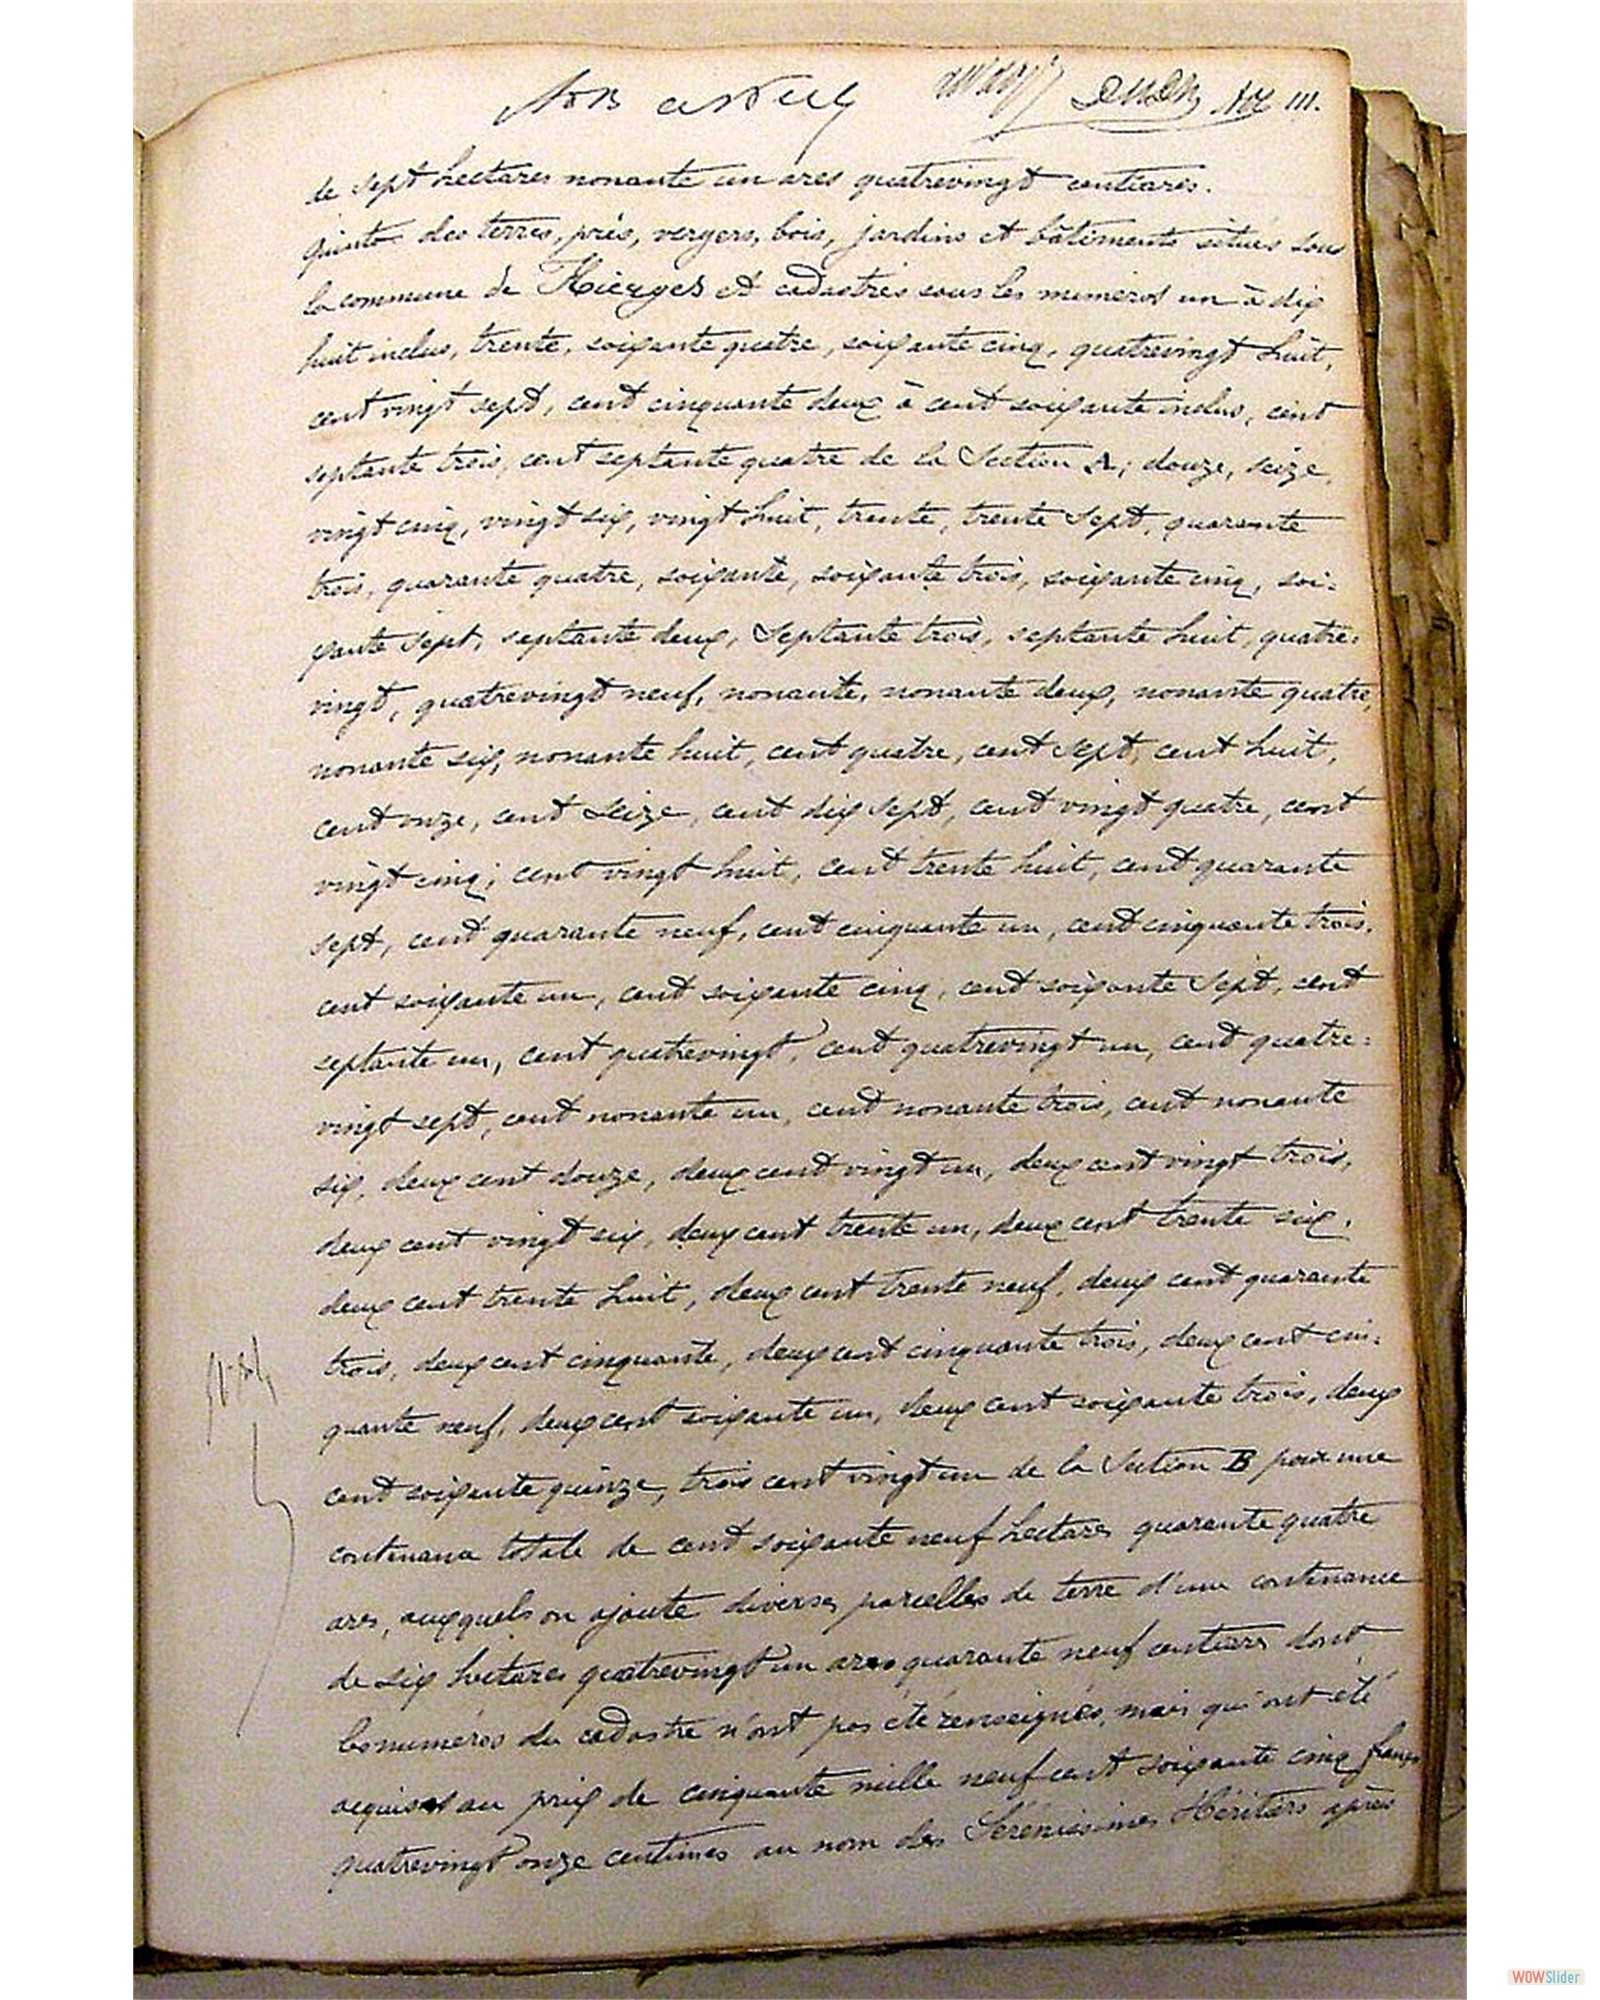 III.
de sept hectares nonante un ares quatrevingt centiares.
Quinto. des terres, prés, vergers, bois, jardins et bâtiments situés sous
la commune de Hierges et cadastrés sous les numéros un à dix
huit inclus, trente, soixante quatre, soixante cinq, quatrevingt huit,
cent vingt sept, cent cinquante deux à cent soixante inclus, cent
septante trois, cent septante quatre de la Section A; douze, seize,
vingt cinq, vingt six, vingt huit, trente, trente sept, quarante
trois, quarante quatre, soixante, soixante trois, soixante cinq, soi=
xante sept, septante deux, septante trois, septante huit, quatre=
vingt, quatrevingt neuf, nonante, nonante deux, nonante quatre,
nonante six, nonante huit, cent quatre, cent sept, cent huit,
cent onze, cent seize, cent dix sept, cent vingt quatre, cent
vingt cinq; cent vingt huit, cent trente huit, cent quarante
sept, cent quarante neuf, cent cinquante un, cent cinquante trois,
cent soixante un, cent soixante cinq, cent soixante sept, cent
septante un, cent quatrevingt, cent quatrevingt un, cent quatre=
vingt sept, cent nonante un, cent nonante trois, cent nonante
six, deux cent douze, deux cent vingt un, deux cent vingt trois,
deux cent vingt six, deux cent trente un, deux cent trente six,
deux cent trente huit, deux cent trente neuf, deux cent quarante
trois, deux cent cinquante, deux cent cinquante trois, deux cent cin=
quante neuf, deux cent soixante un, deux cent soixante trois, deux
cent soixante quinze, trois cent vingt un de la Section B pour une
contenance totale de cent soixante neuf hectares quarante quatre
ares, auxquels on ajoute diverses parcelles de terre d'une contenance
de six hectares quatrevingt un ares quarante neuf centiares dont
les numéros du cadastre n'ont pas été renseignés, mais qui ont été
acquises au prix de cinquante mille neuf cent soixante cinq francs
quatrevingt onze centimes au nom des Sérénissimes Héritiers après
WOWSlider